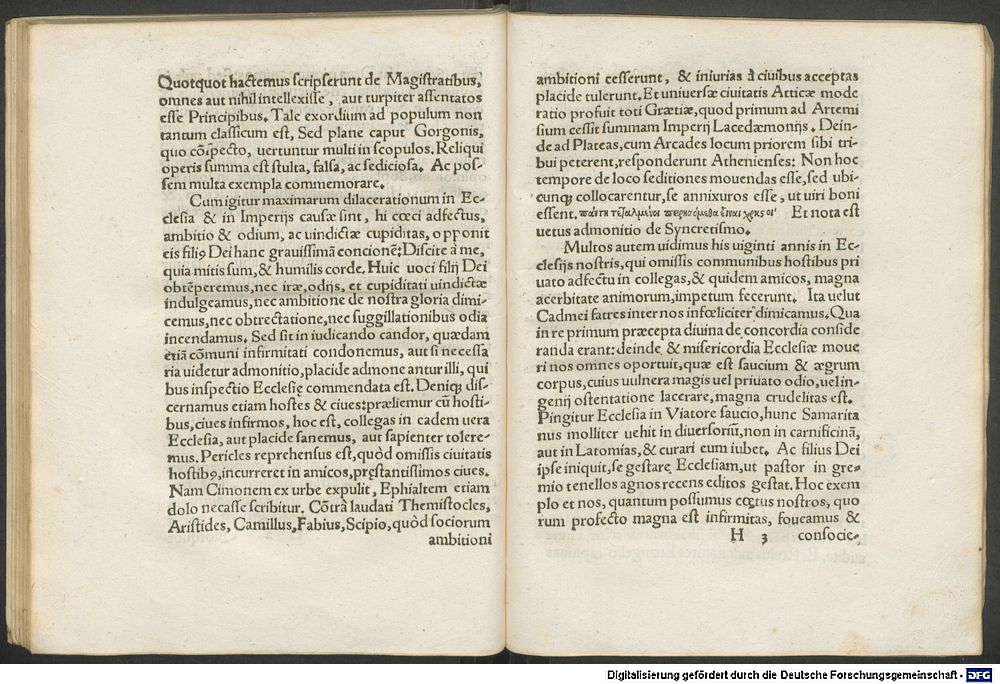 Quotquot hactemus scripserunt de Magistratibus,
omnes aut nihil intellexisse, aut turpiter assentatos
esse Principibus. Tale exordium ad populum non
tantum classicum est, Sed plane caput Gorgonis,
quo cõspecto, uertuntur multi in scopulos. Reliqui
operis summa est stulta, falsa, ac sediciosa. Ac pos-
sem multa exempla commemorare.
Cum igitur maximarum dilacerationum in Ec-
clesia & in Imperijs causæ sint, hi cœci adfectus,
ambitio & odium, ac uindictæ cupiditas, opponit
eis filiꝰ Dei hanc grauissimã concionẽ: Discite à me,
quia mitis sum, & humilis corde. Huic uoci filij Dei
obtẽperemus, nec iræ, odijs, et cupiditati uindictæ
indulgeamus, nec ambitione de nostra gloria dimi-
cemus, nec obtrectatione, nec suggillationibus odia
incendamus. Sed sit in iudicando candor, quædam
etiã cõmuni infirmitati condonemus, aut si necessa
ria uidetur admonitio, placide admoneantur illi, qui
bus inspectio Ecclesię commendata est. Deniqꝫ dis-
cernamus etiam hostes & ciues: præliemur cũ hosti-
bus, ciues infirmos, hoc est, collegas in eadem uera
Ecclesia, aut placide sanemus, aut sapienter tolere-
mus. Pericles reprehensus est, quòd omissis ciuitatis
hostibꝰ, incurreret in amicos, pręstantissimos ciues.
Nam Cimonem ex urbe expulit, Ephialtem etiam
dolo necasse scribitur. Cõtrà laudati Themistocles,
Aristides, Camillus, Fabius, Scipio, quòd sociorum
ambitioni
ambitioni cesserunt, & iniurias à ciuibus acceptas
placide tulerunt. Et uniuersæ ciuitatis Atticæ mode
ratio profuit toti Grætiæ, quod primum ad Artemi
sium cessit summam Imperij Lacedæmonijs. Dein-
de ad Plateas, cum Arcades locum priorem sibi tri-
bui peterent, responderunt Athenienses: Non hoc
tempore de loco seditiones mouendas esse, sed ubi-
cunqꝫ collocarentur, se annixuros esse, ut uiri boni
essent. Et nota est
uetus admonitio de Syncretismo.
Multos autem uidimus his uiginti annis in Ec-
clesijs nostris, qui omissis communibus hostibus pri
uato adfectu in collegas, & quidem amicos, magna
acerbitate animorum, impetum fecerunt. Ita uelut
Cadmei fatres inter nos infœliciter dimicamus. Qua
in re primum præcepta diuina de concordia conside
randa erant: deinde & misericordia Ecclesiæ moue
ri nos omnes oportuit, quæ est saucium & ægrum
corpus, cuius uulnera magis uel priuato odio, uel in-
genij ostentatione lacerare, magna crudelitas est.
Pingitur Ecclesia in Viatore saucio, hunc Samarita
nus molliter uehit in diuersoriũ, non in carnificinã,
aut in Latomias, & curari eum iubet. Ac filius Dei
ipse iniquit, se gestare Ecclesiam, ut pastor in gre-
mio tenellos agnos recens editos gestat. Hoc exem
plo et nos, quantum possumus cœtus nostros, quo
rum profecto magna est infirmitas, foueamus &
H 3 consocie-
Digitalisierung gefördert durch die Deutsche Forschungsgemeinschaft - DFG